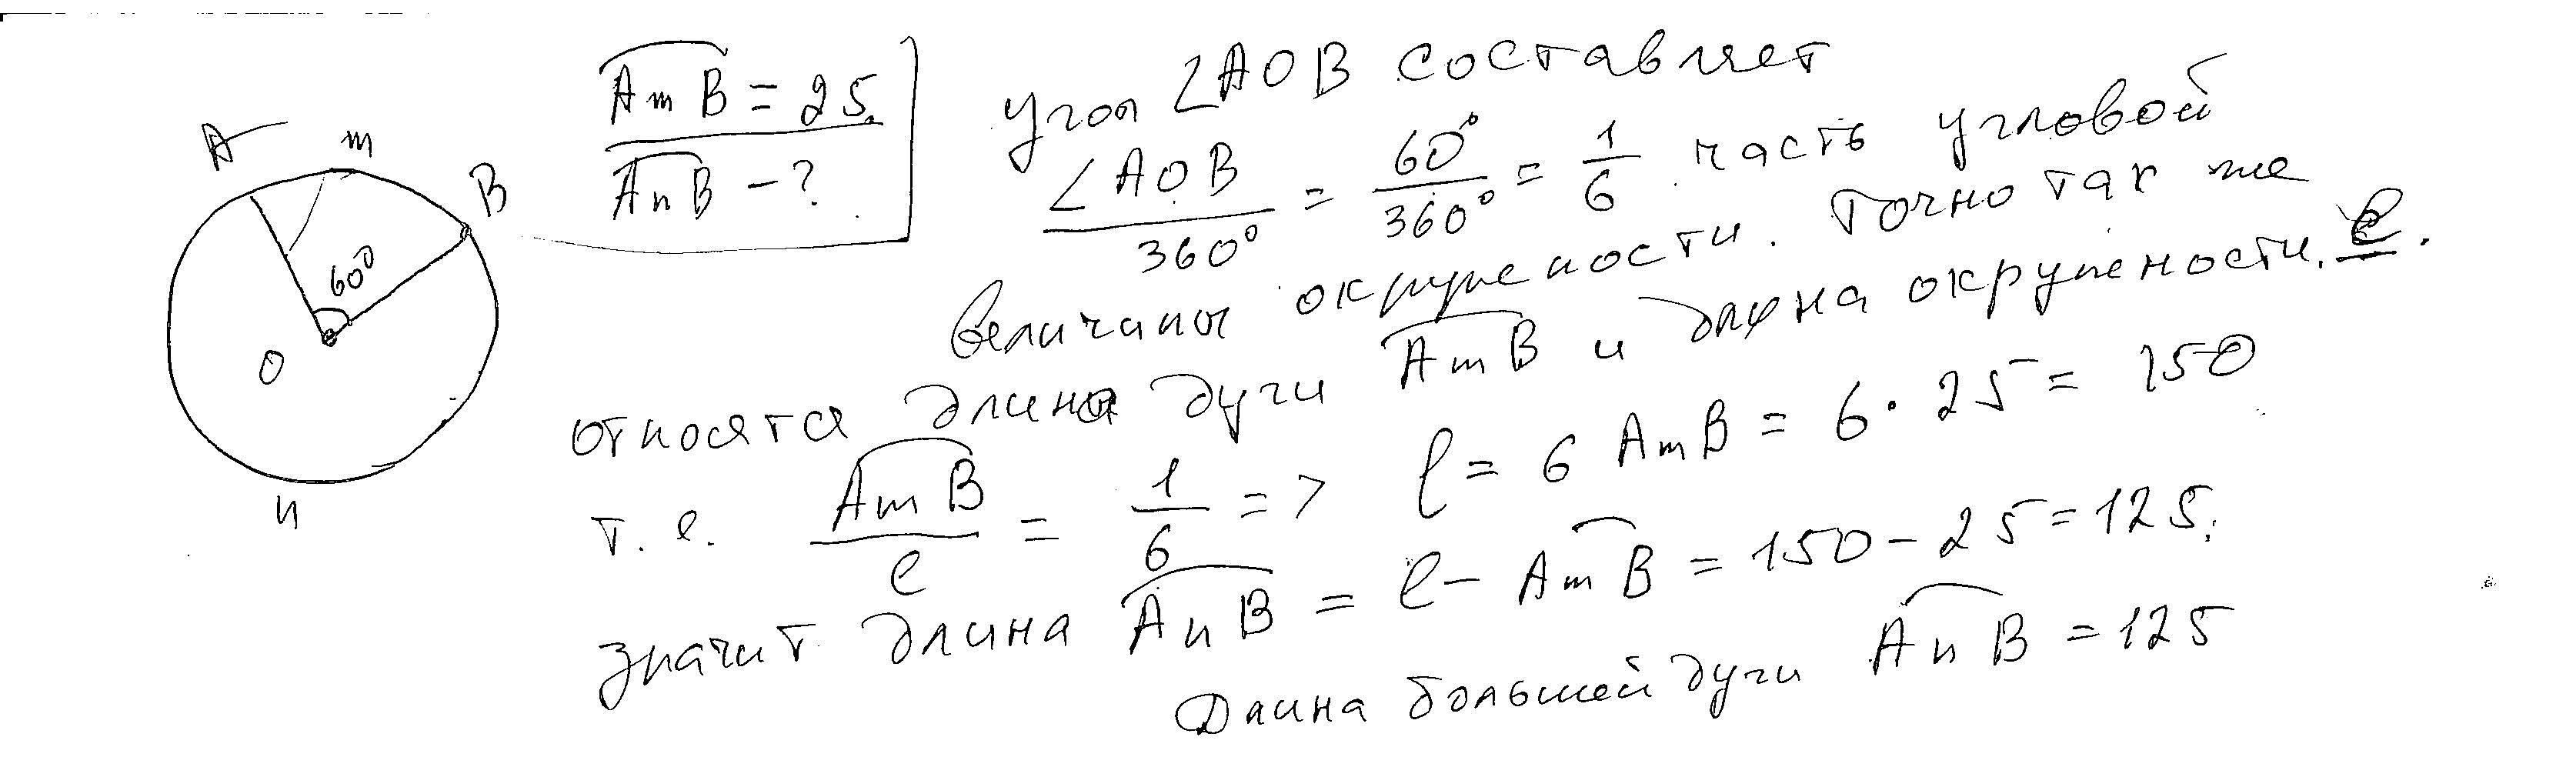 A m B
60°
O
n
AmB = 25.
AnB – ?
угол ∠AOB составляет
∠AOB / 360° = 60° / 360° = 1/6 часть угловой
величины окружности. Точно так же
относятся длина дуги AmB и длина окружности. ℓ.
т. е. AmB / ℓ = 1/6 => ℓ = 6 AmB = 6 · 25 = 150
значит длина AnB = ℓ – AmB = 150 – 25 = 125.
Длина большей дуги AnB = 125